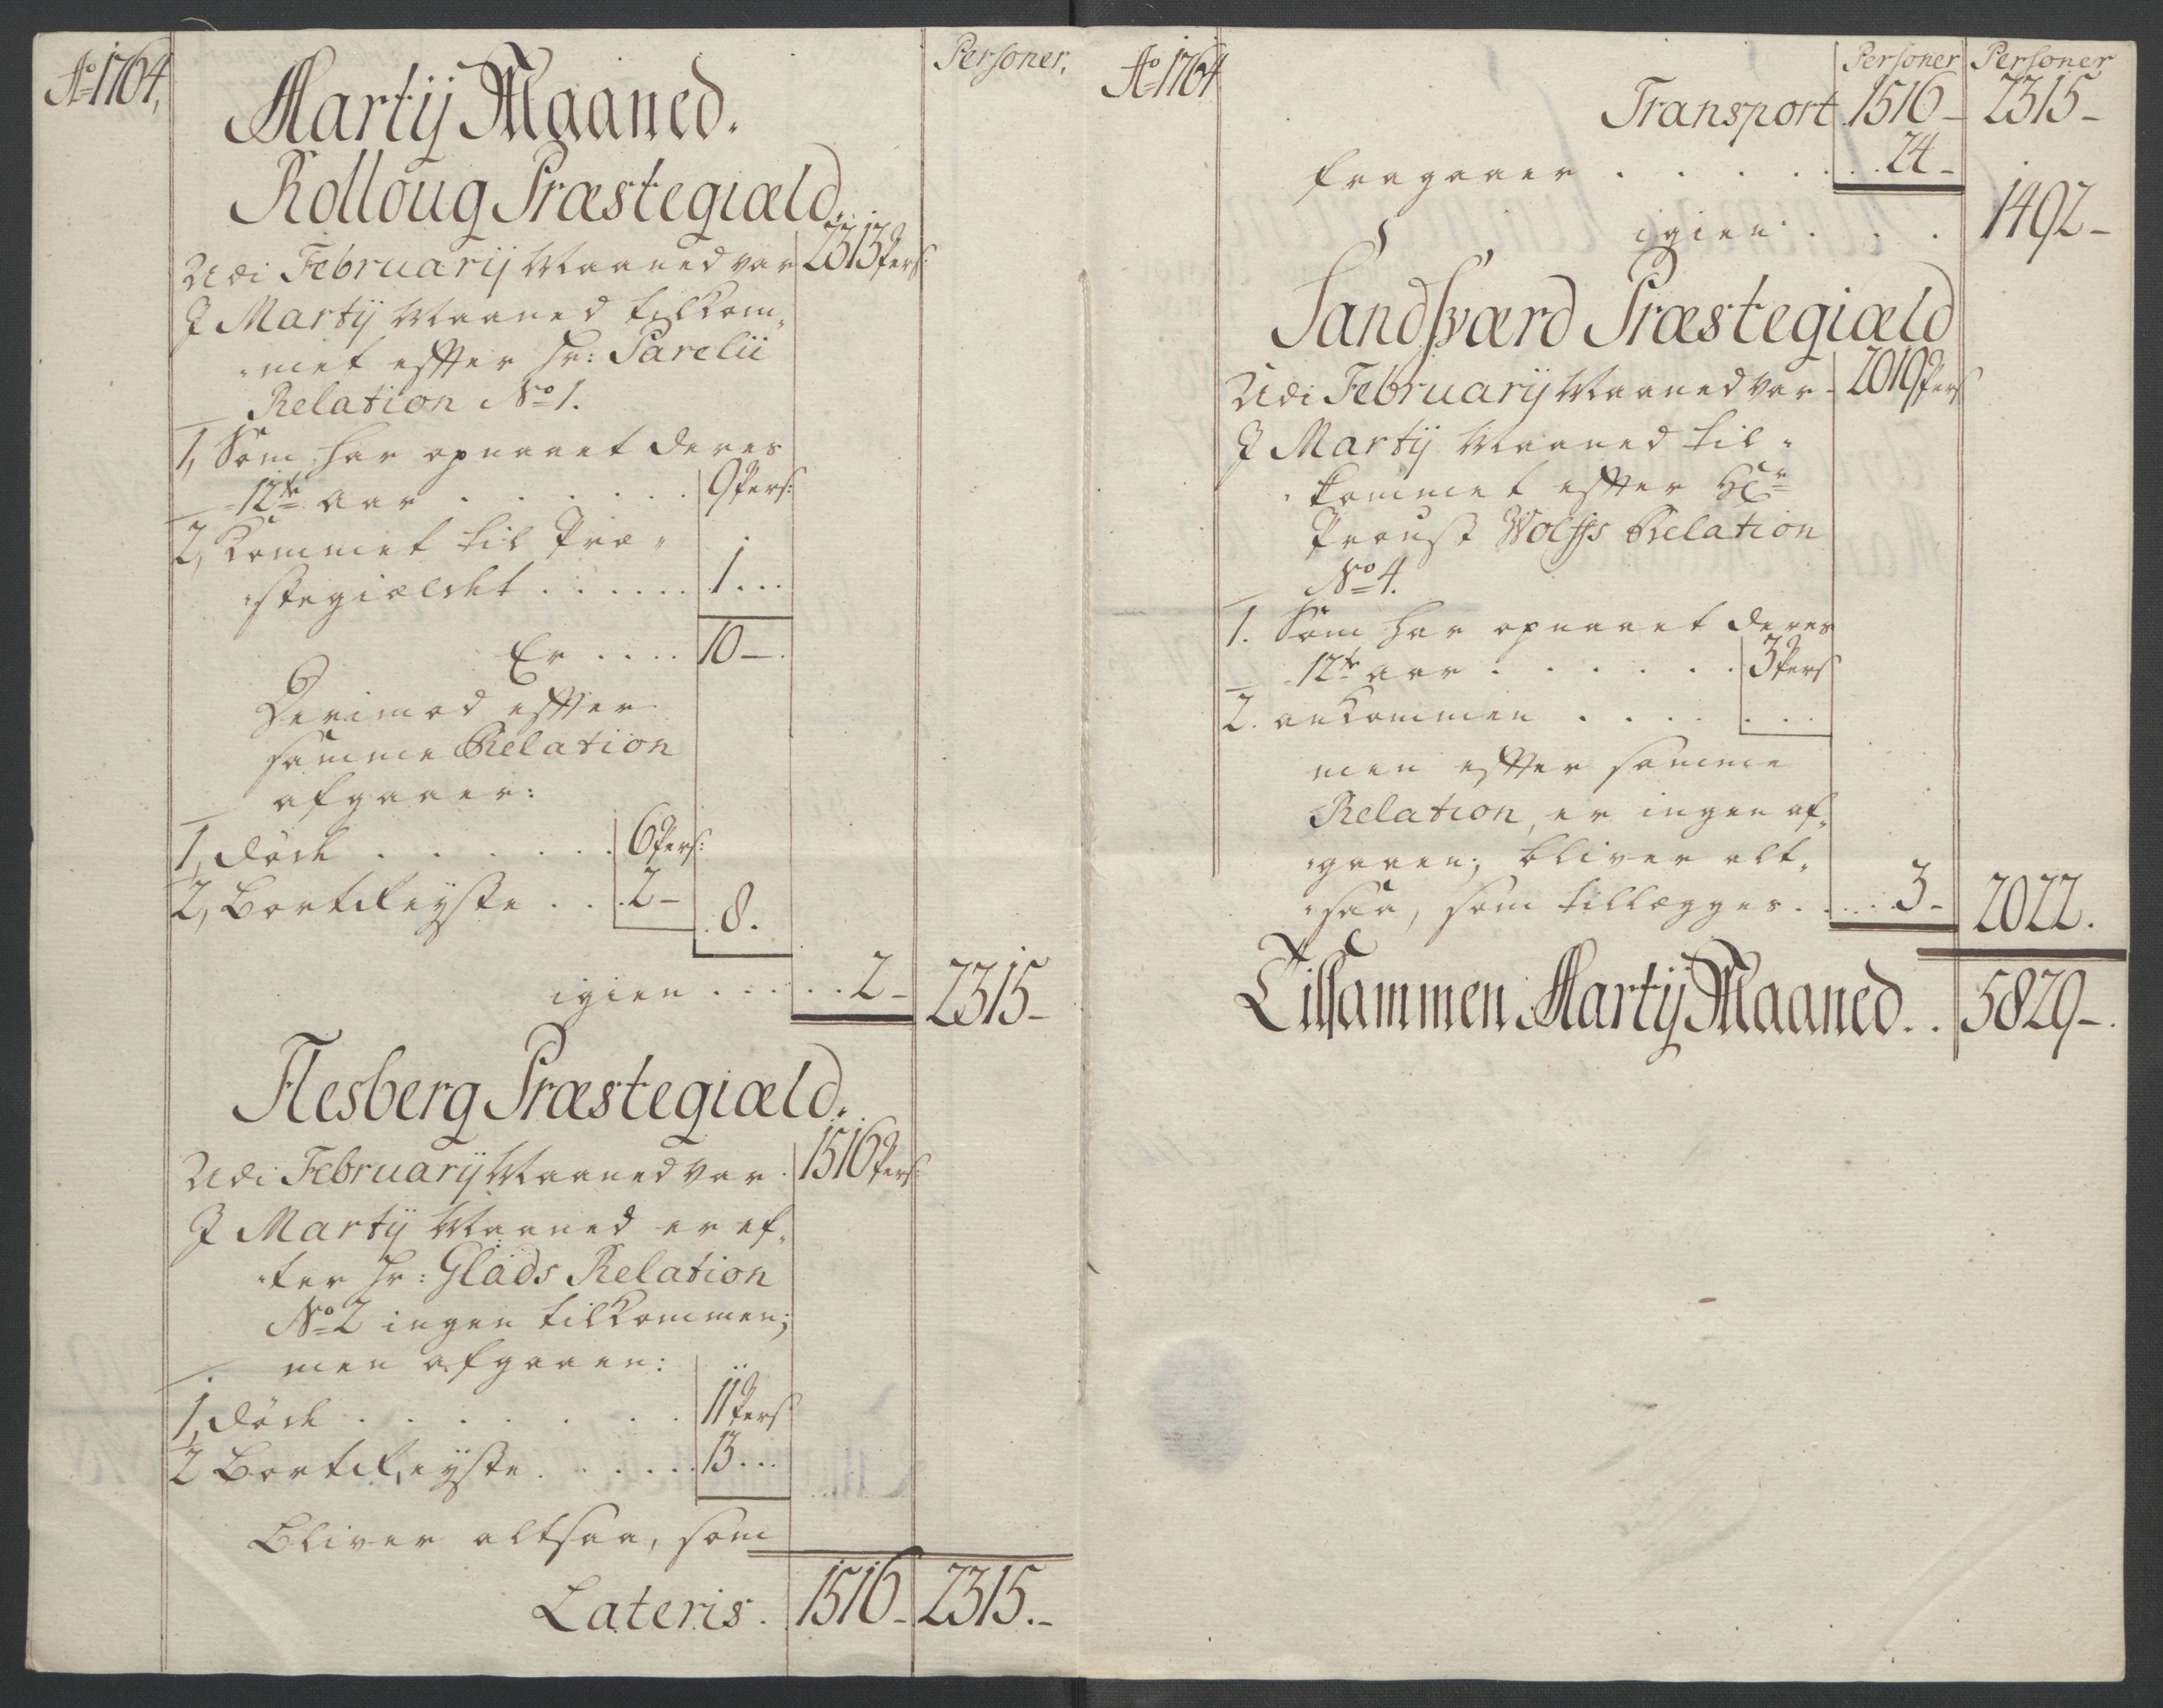 Ao 1764,
Personer,
Martij Maaned.
Rolloug Præstegiæld.
Udi Februarij Maaned var 2313 Pers:
I Martij Maaned tilkom„
„met effter Hr: Parelii
Relation No 1.
1, Som har opnaaet deres
12te aar . . . . . . 9 Pers:
2, kommet til Præ„
„stegiældet . . . . . . 1 . . .
Er . . . . 10 —.
Derimod effter
samme Relation
afgaaer:
1, døde . . . . . . 6 Pers:
2, Bortreyste . . . 2 —
8.
igien . . . . . 2 — 2315 —
Flesberg Præstegiæld.
Udi Februarij Maaned var . 1516 Pers:
I Martij Maaned er ef„
„ter Hr: Glads Relation
No 2 ingen tilkommen;
men afgaaen:
1, døde . . . . . . . 11 Pers
2 Bortreyste . . . . . . 13 . . .
Bliver altsaa, som
Lateris. 1516 — 2315. —
Ao 1764
Personer Personer
Transport 1516 — 2315 —
fragaaer . . . . . . . 24 —
igien . . . 1492 —
Sandsværd Præstegiæld
Udi Februarij Maaned var — 2019 Pers
I Martij Maaned til„
„kommet effter Hr
Proust Wolffs Relation
No 4.
1. Som har opnaaet deres
12te aar . . . . . . 3 Pers
2. ankommen . . . . . . .
men effter samme
Relation, er ingen af„
„gaaen; bliver alt„
„saa, som tillægges . . . . . 3 — 2022.
Tilsammen Martij Maaned . . 5829 —.